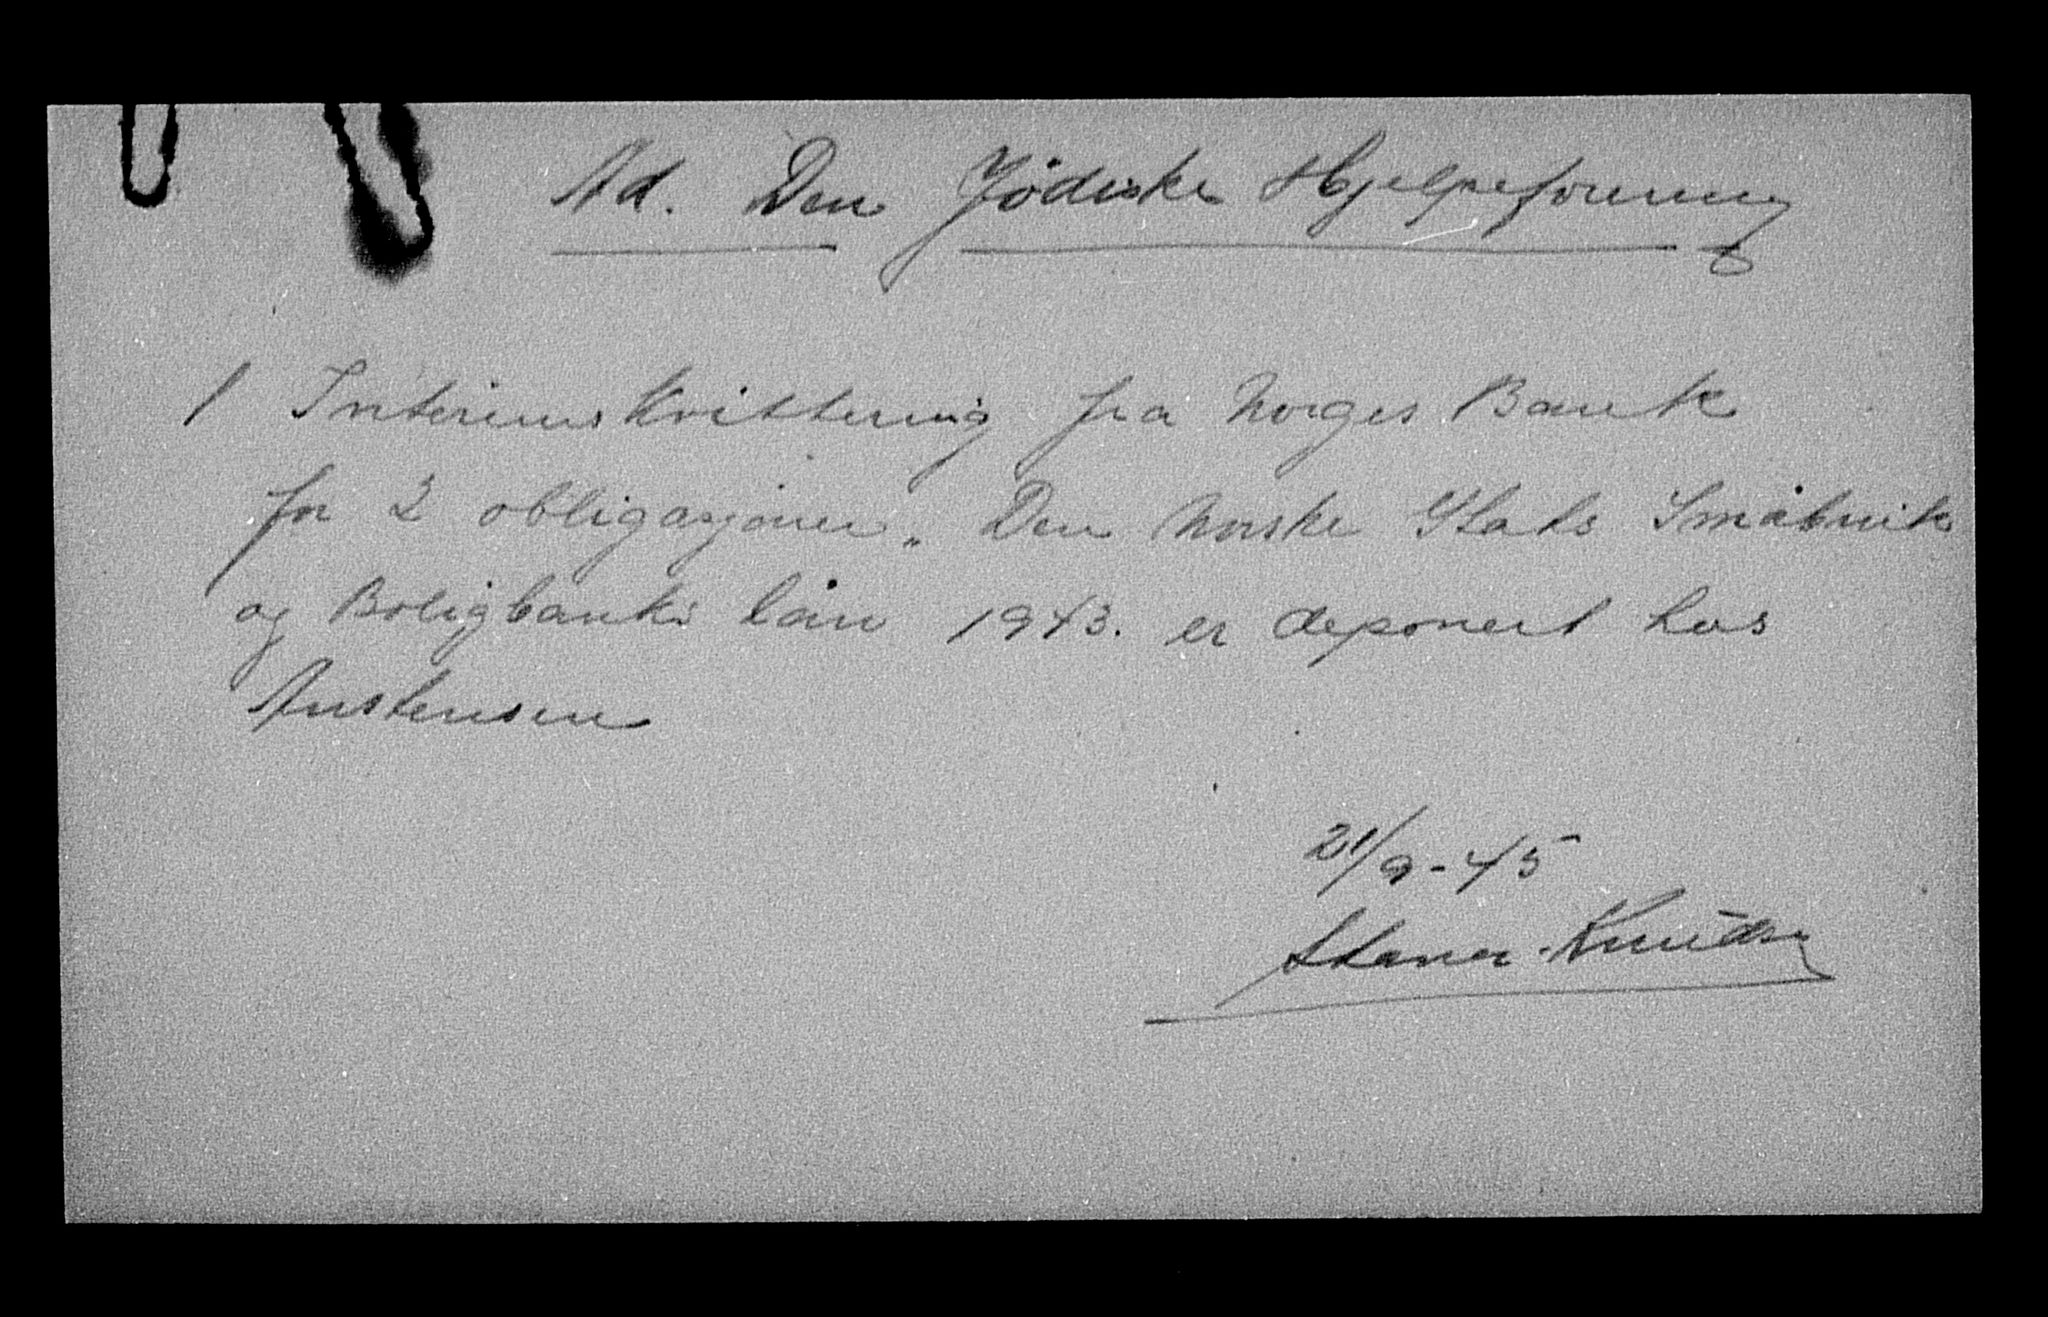 Ad. Den Jødiske Hjelpeforening
1 Interimskvittering fra Norges Bank
for 2 obligasjoner „ Den Norske Stats Småbruk
og Boligbanks lån 1943. er deponert hos
Austensen
21/9-45
Knudsen